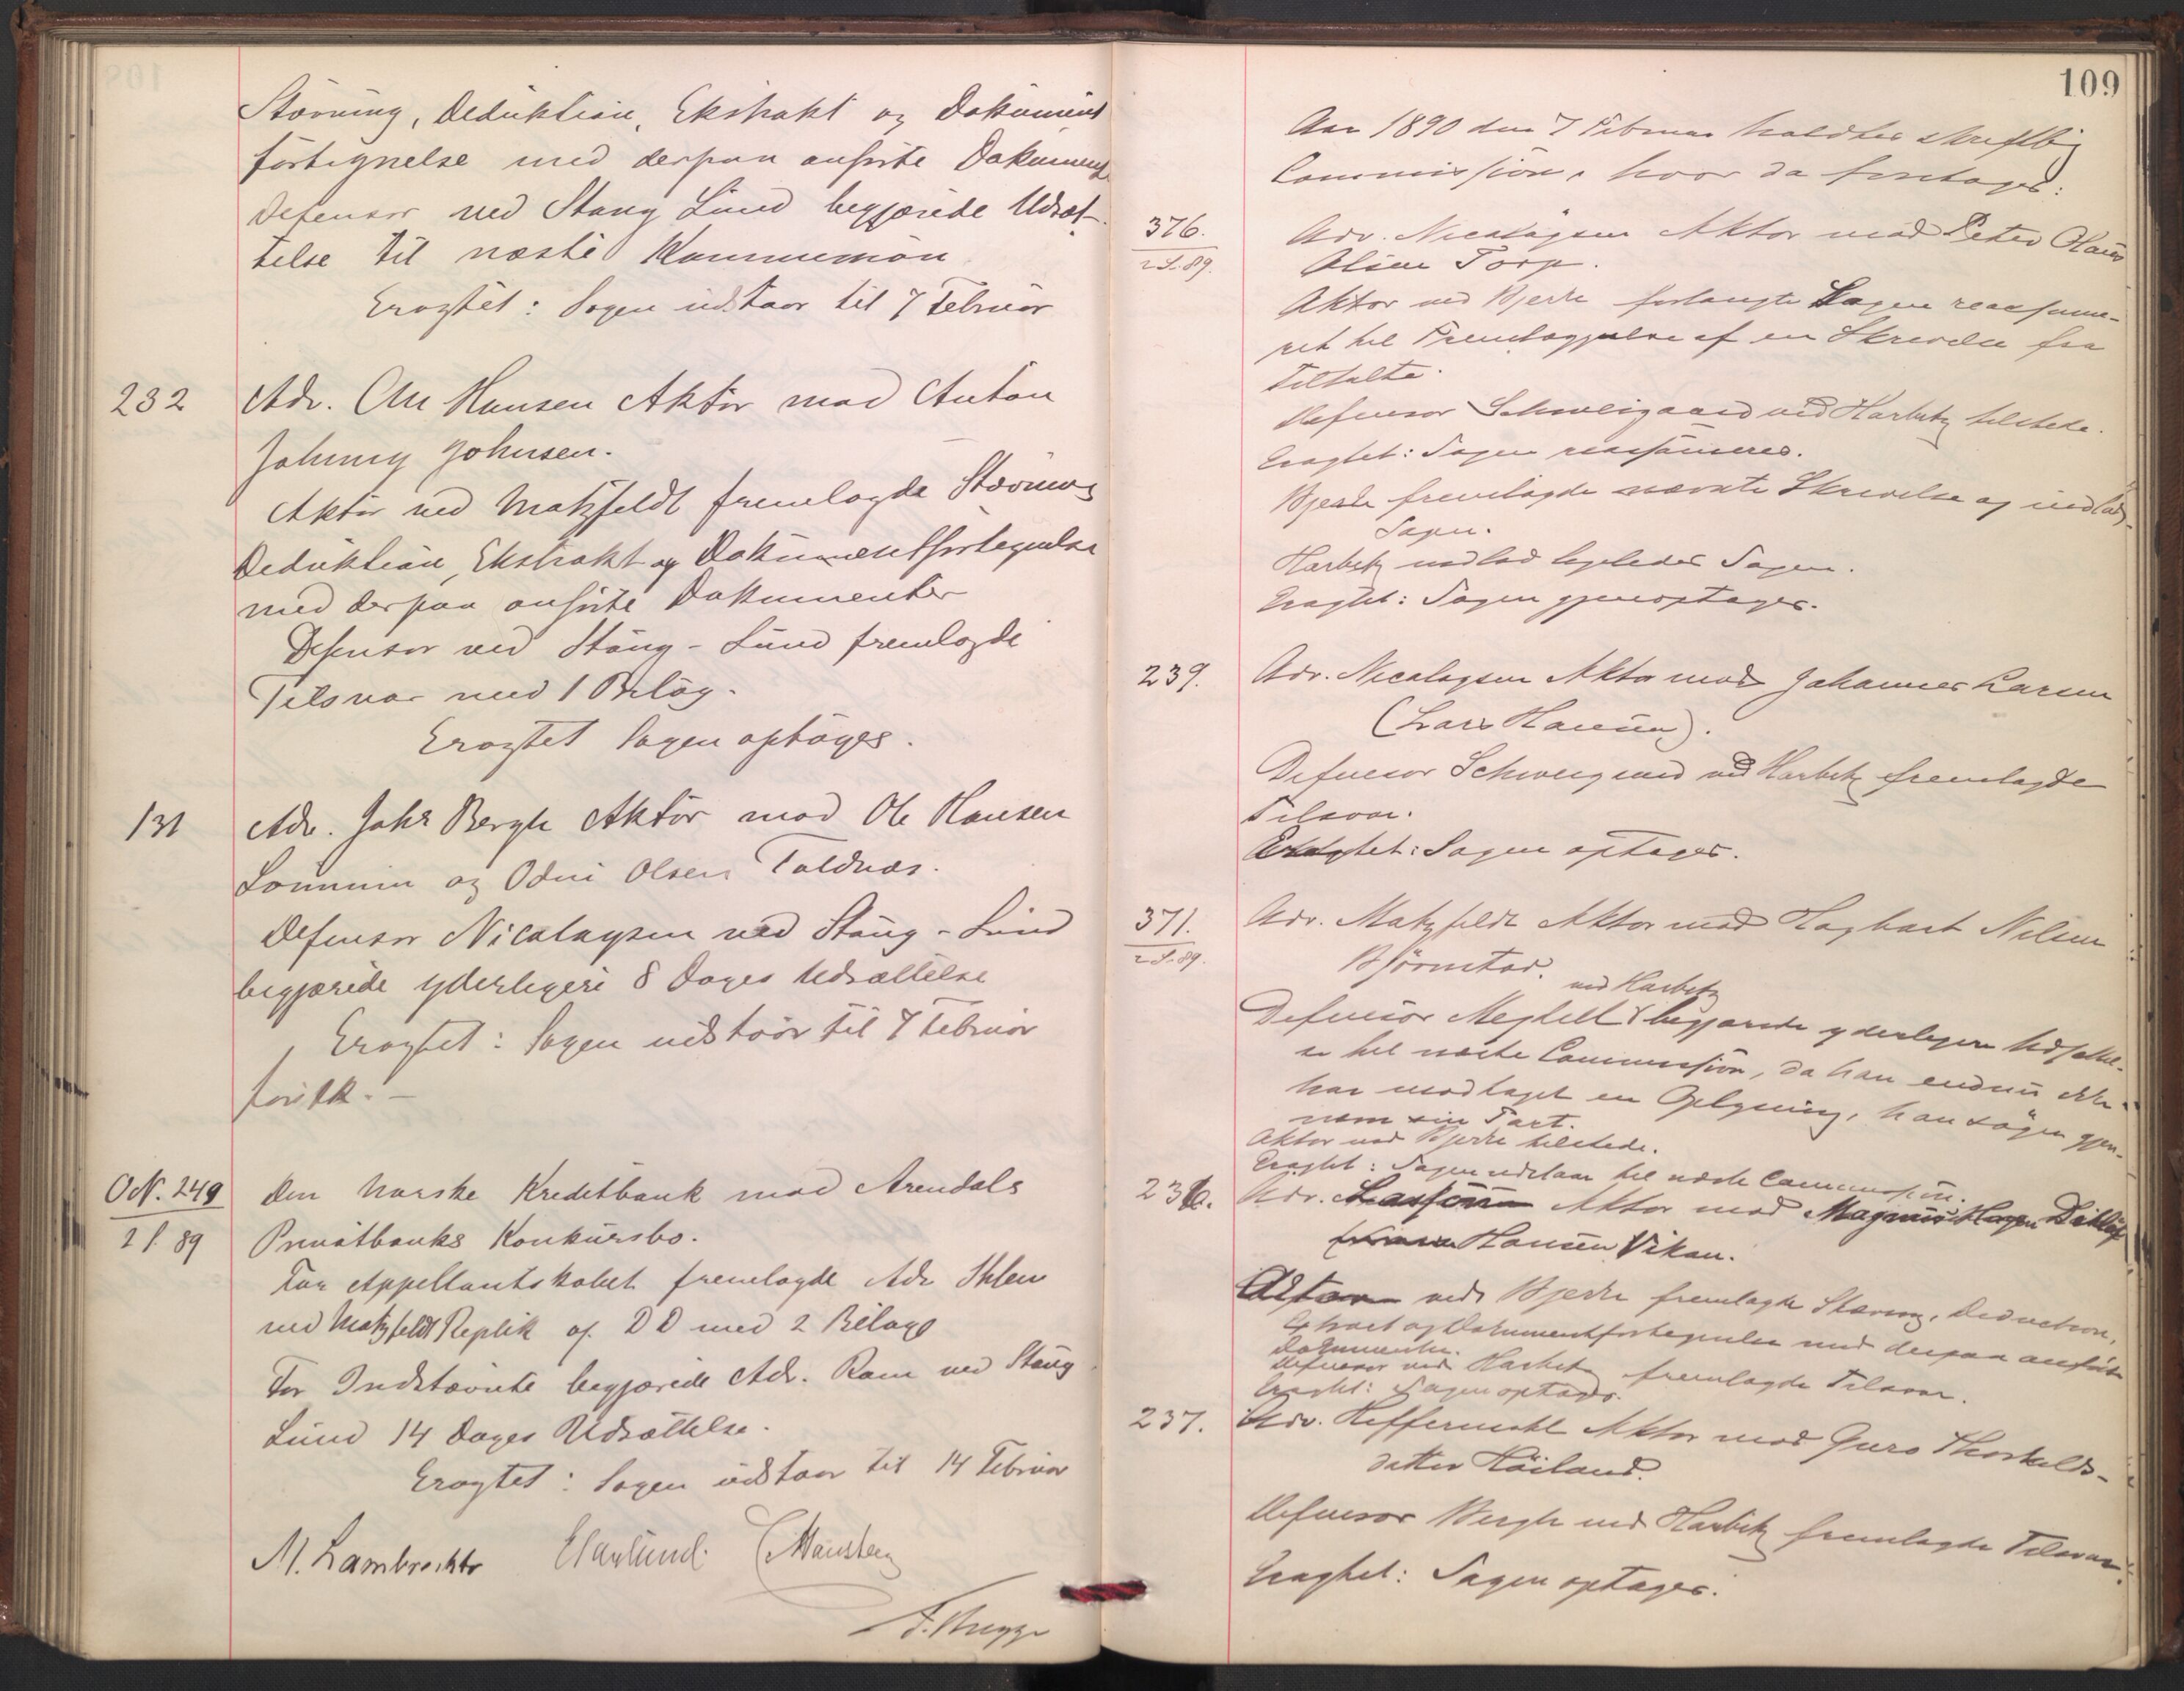 Stævning, Deduktion, Ekstrakt og Dokument
fortegnelse med derpaa anførte Dokumenter
Defensor ved Stang Lund begjærede Udsæt-
telse til næste Kommission
Eragtet: Sagen udstaar til 7 Februar
232 Adv. Chr Hansen Aktor mod Anton
Johnny Johnsen.
Aktor ved Matzfeldt fremlagde Stævning
Deduktion, Ekstrakt og Dokumentfortegnelse
med derpaa anførte Dokumenter
Defensor ved Stang-Lund fremlagde
Tilsvar med 1 Bilag.
Eragtet Sagen optages.
131 Adv. Johs Bergh Aktor mod Ole Hansen
og Odin Olsen Toldnæs.
Defensor Nicolaysen ved Stang-Lund
begjærede yderligere 8 Dages Udsættelse
Eragtet: Sagen udstaar til 7 Februar
førstk. -
O.N. 249 Den norske Kreditbank mod Arendals
2 S. 89 Privatbanks Konkursbo.
For Appellantskabet fremlagde Adv
ved Matzfeldt Replik af D D med 2 Bilage
For Indstævnte begjærede Adv. Ram ved Stang
Lund 14 Dages Udsættelse.
Eragtet: Sagen udstaar til 14 Februar
M. Lambrechts E Hagerup Lund C Mansberg
109
Aar 1890 den 7 Februar holdtes skriftlig
Commission, hvor da foretoges:
376. Adv. Nicolaysen Aktor mod Peter Olaus
2 S. 89. Olsen Torp.
Aktor ved Bjerke forlangte Sagen reassume-
ret til Fremlæggelse af en Skrivelse fra
Tiltalte.
Defensor Schweigaard ved Harbitz tilstede.
Eragtet: Sagen reassumeres.
Bjerke fremlagde nævnte Skrivelse og indlod
Sagen.
Harbitz indlod ligeledes Sagen.
Eragtet: Sagen gjenoptages.
239. Adv. Nicolaysen Aktor mod Johannes Larsen
(Lars Hansen).
Defensor Schweigaard ved Harbitz fremlagde
Tilsvar.
Eragtet: Sagen optages.
371. Adv. Matzfeldt Aktor mod Hagbart Nilsen
2 S. 89. Bjørnstad.
ved Harbitz
Defensor Meydell begjærede yderligere Udsættel-
se til næste Commission, da han endnu ikke
har modtaget en Oplysning, han søger gjen-
nem sin Part.
Aktor ved Bjerke tilstede.
Eragtet: Sagen udstaar til næste Commission.
236. Adv. Aktor mod Magnus Ditlef
Hansen Vikan.
Aktor ved Bjerke fremlagde Stævning, Deduction,
Extract og Dokumentfortegnelse med derpaa anførte
Dokumenter.
Defensor ved Harbitz fremlagde Tilsvar.
Eragtet: Sagen optages.
237. Adv. Heffermehl Aktor mod Guro Thorkelds-
datter Høiland.
Defensor Bergh ved Harbitz fremlagde Tilsvar.
Eragtet: Sagen optages.